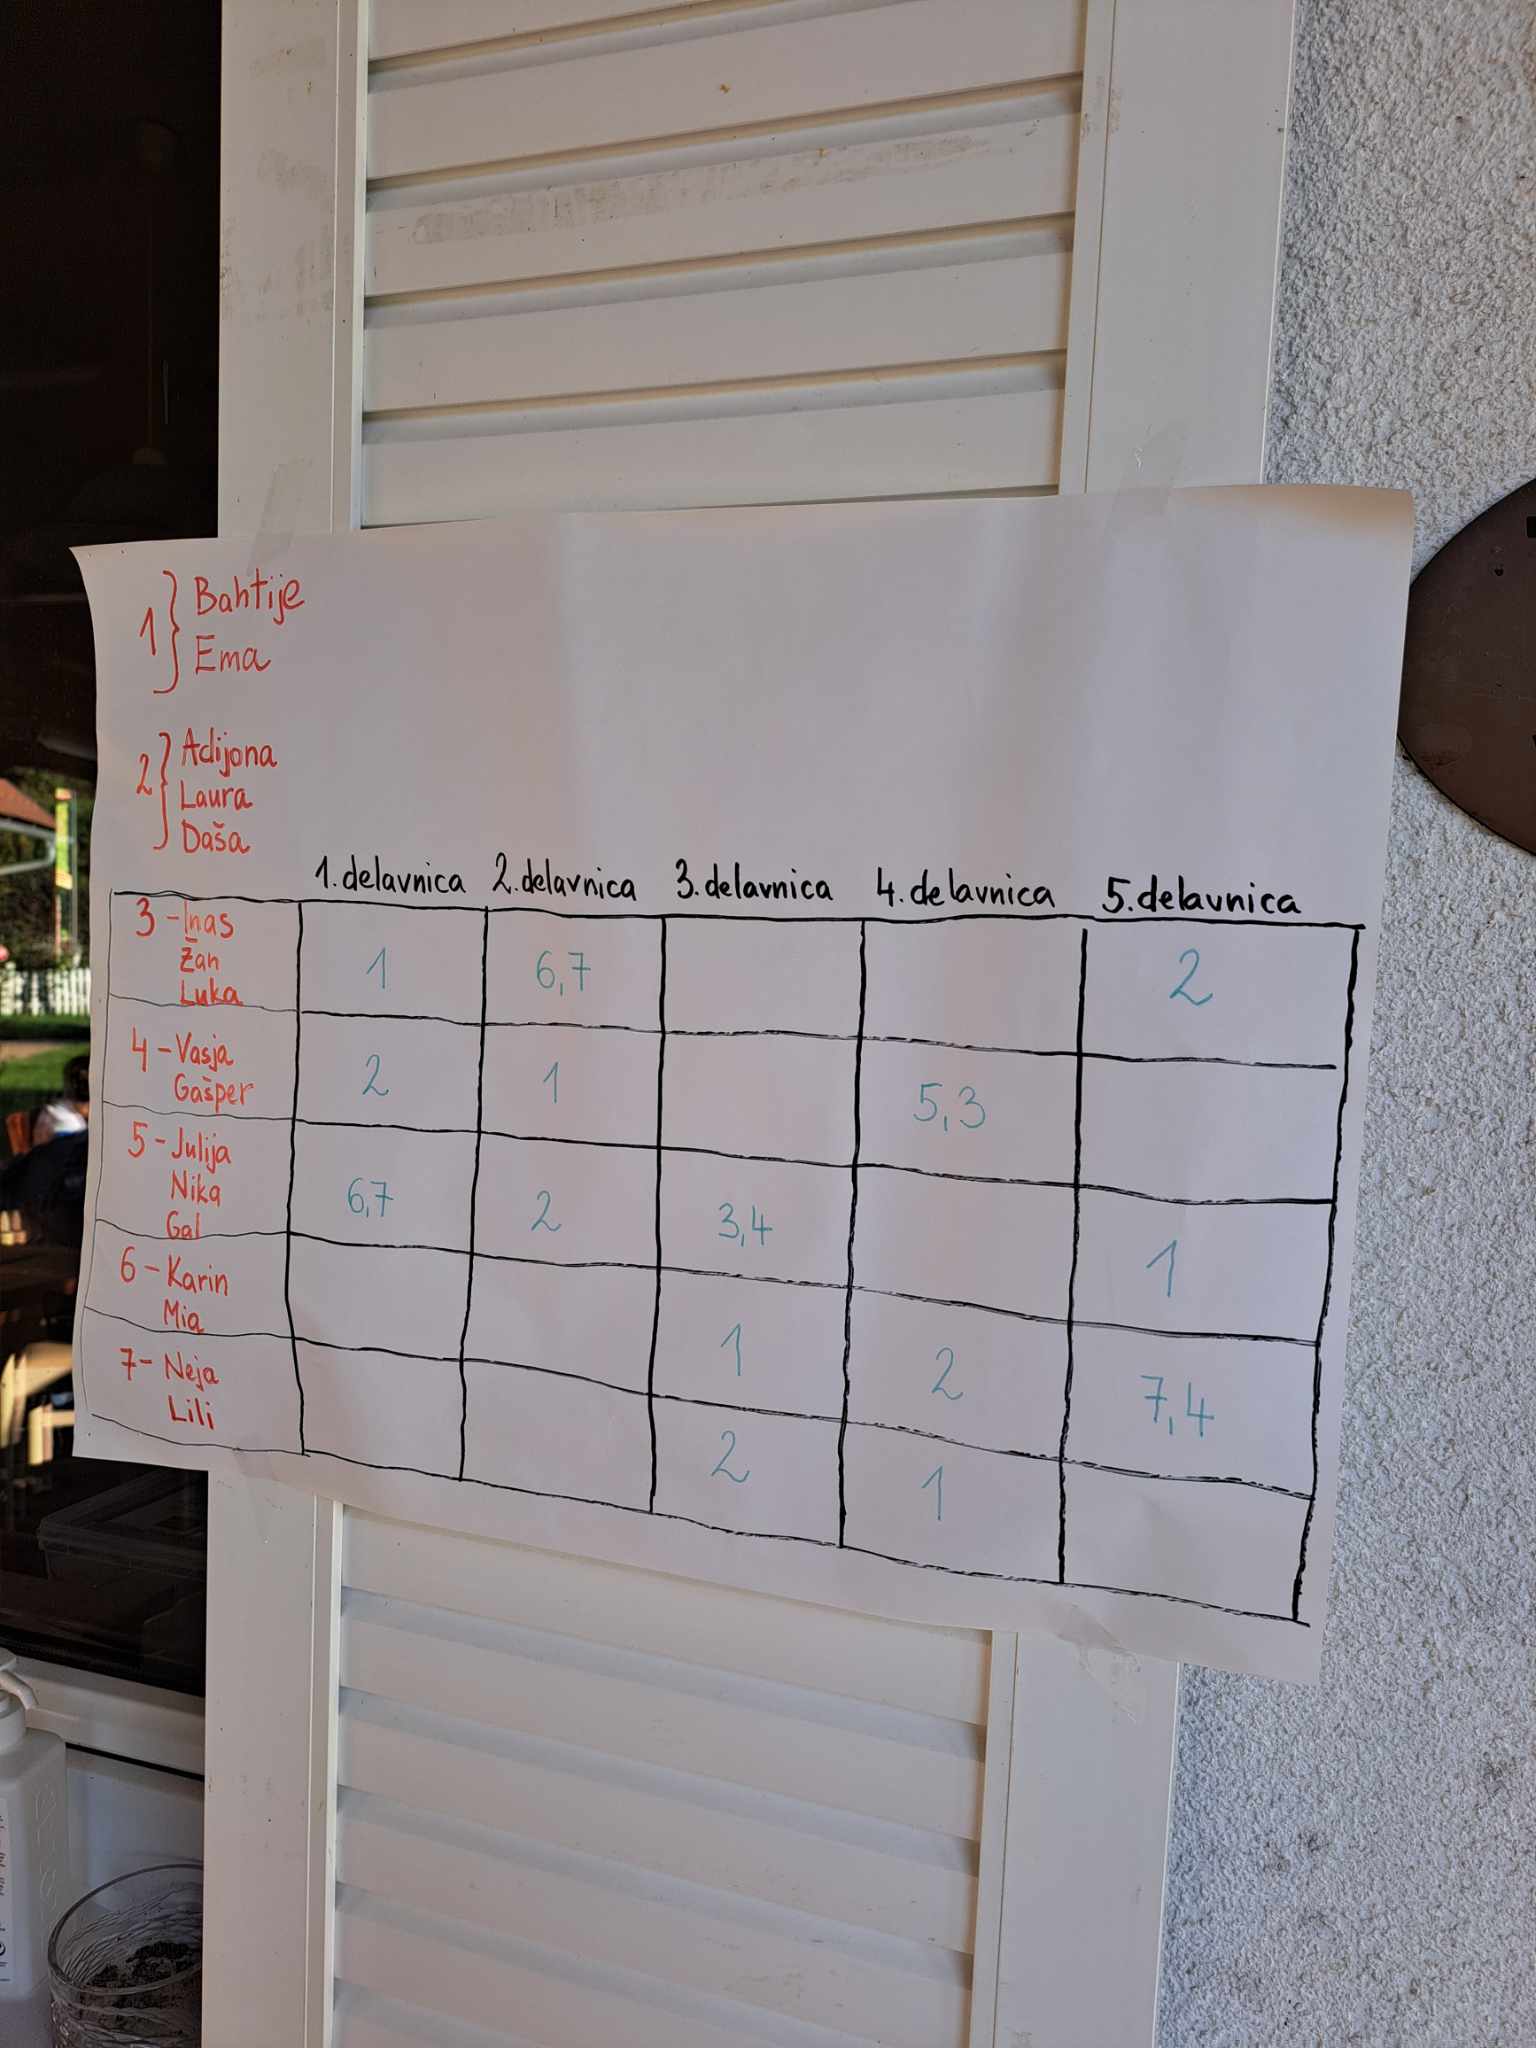 1 } Bahtije
Ema
2 } Adijona
Laura
Daša
1. delavnica 2. delavnica 3. delavnica 4. delavnica 5. delavnica
3 - Inas
Žan
Luka
1 6,7 2
4 - Vasja
Gašper
2 1 5,3
5 - Julija
Nika
Gal
6,7 2 3,4 1
6 - Karin
Mia
1 2 7,4
7 - Neja
Lili
2 1